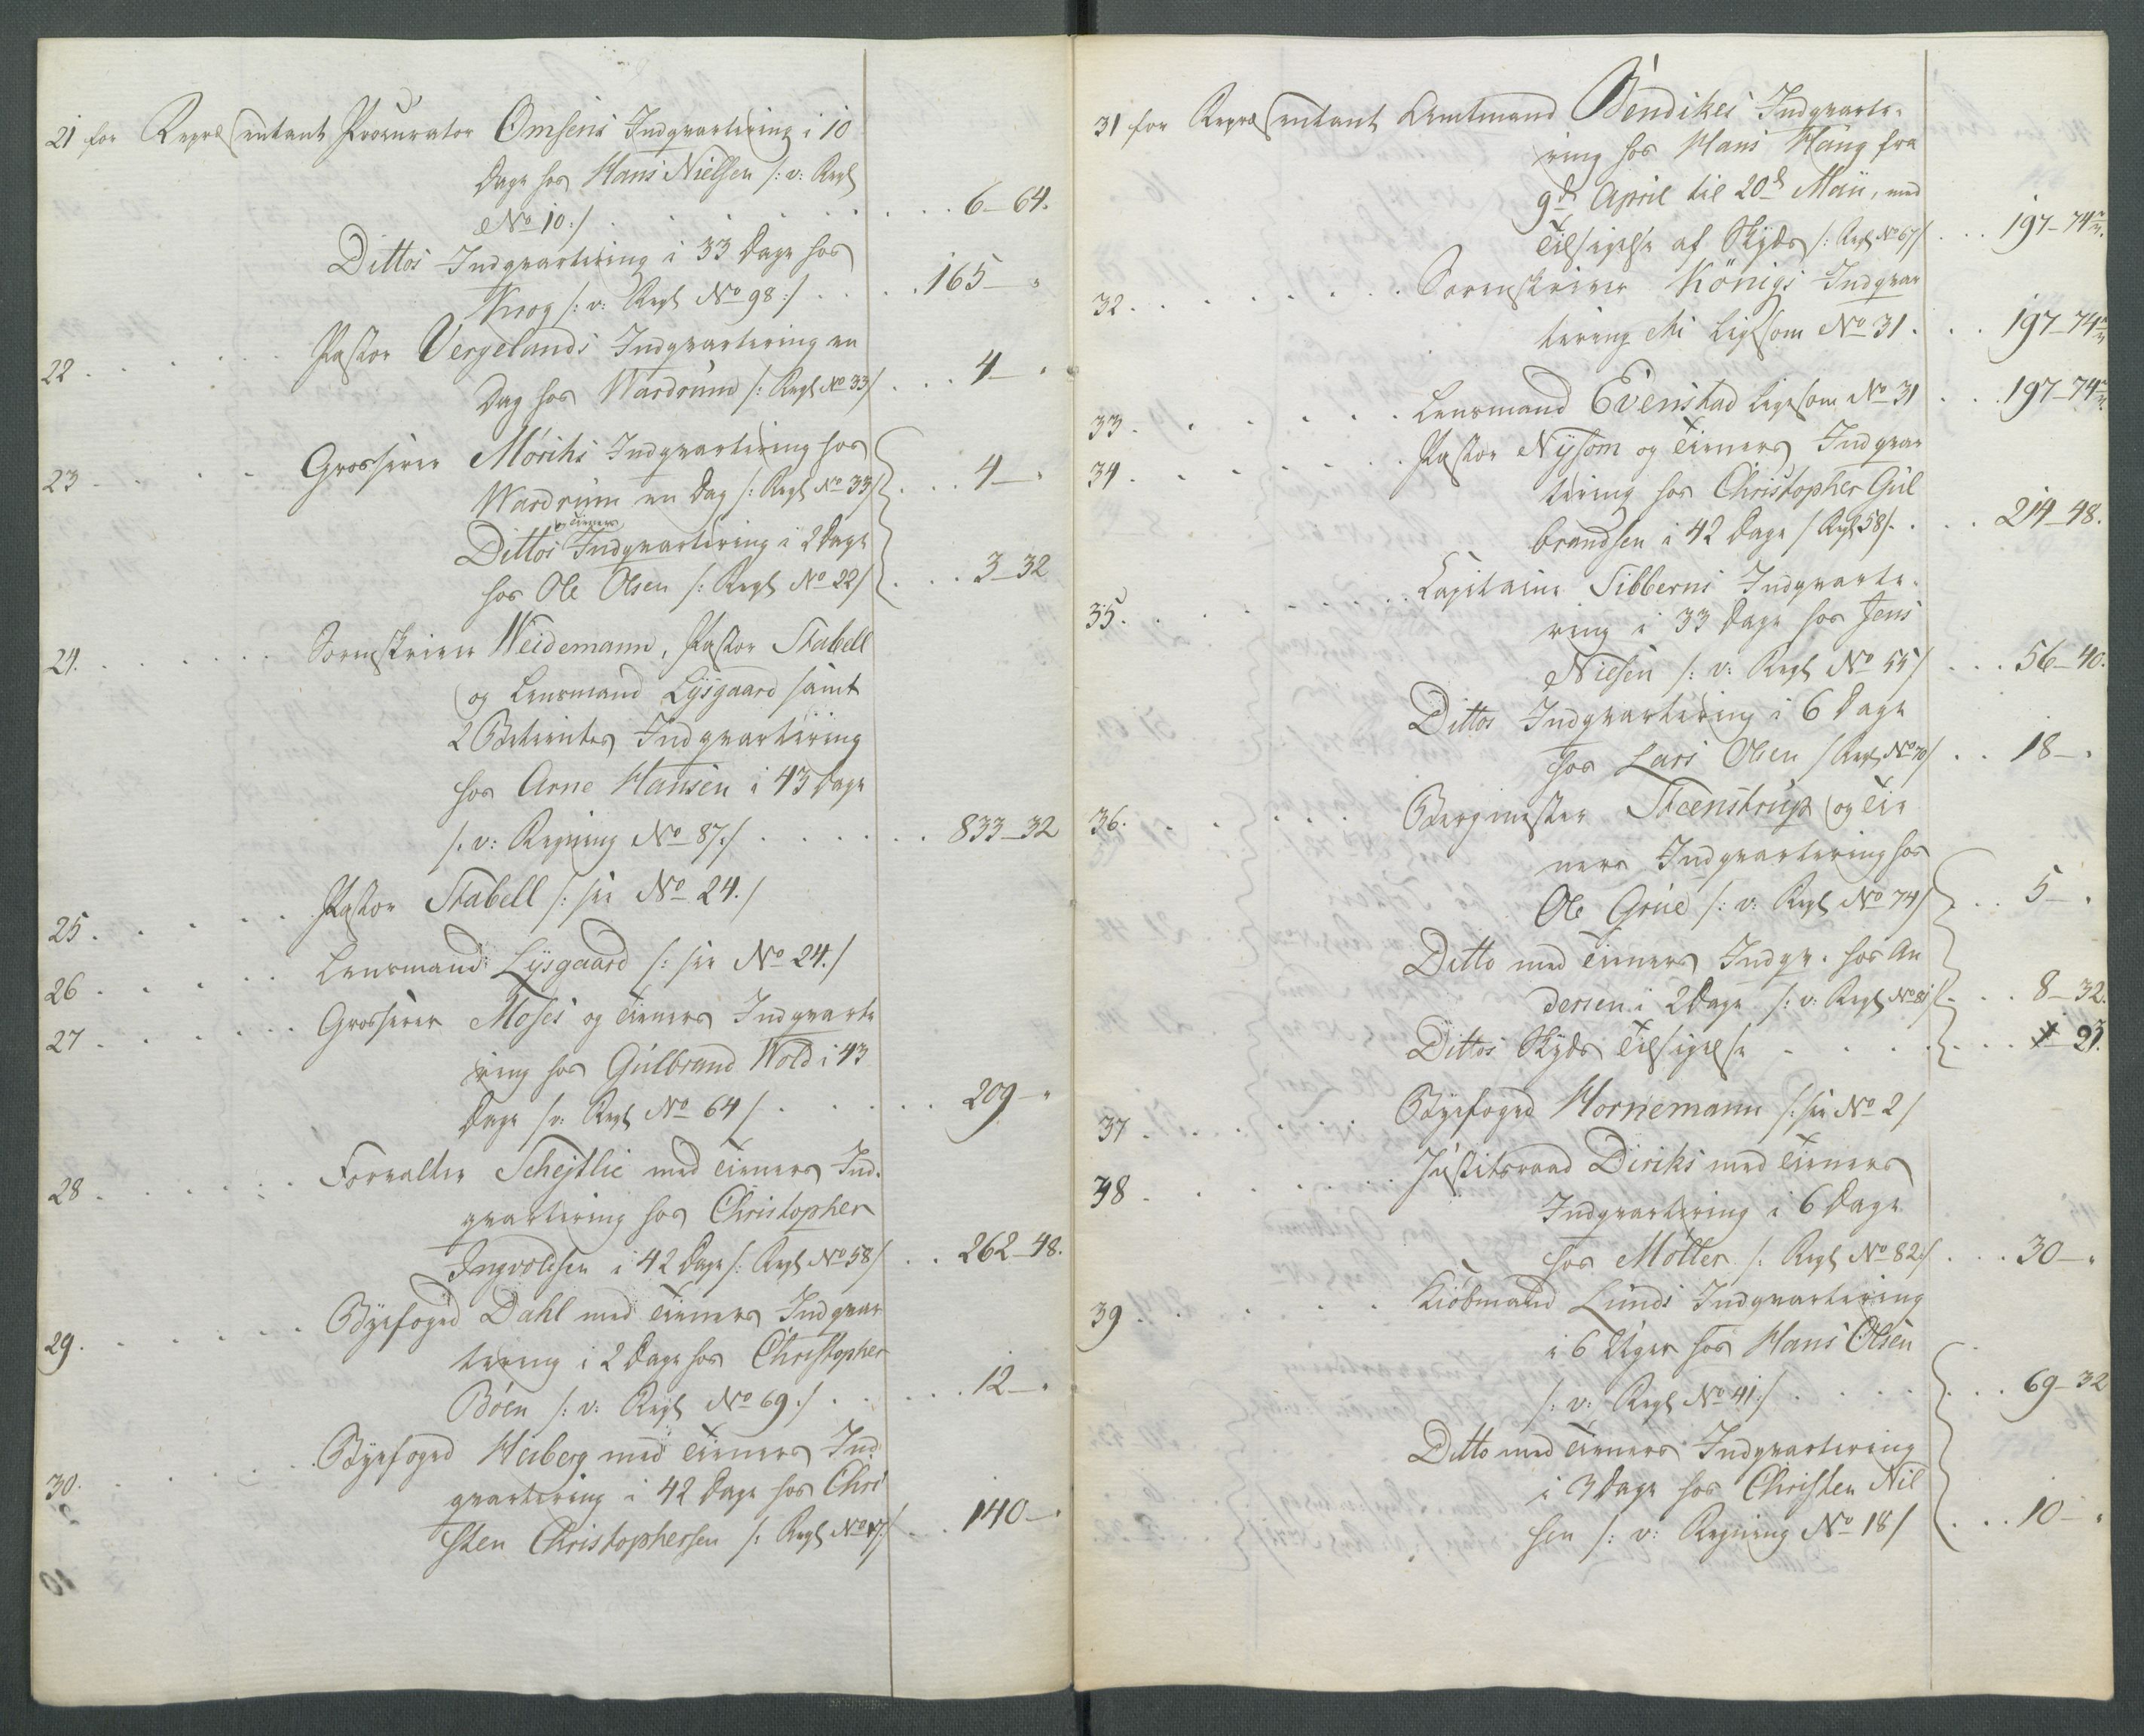 21 for Repræsentant Procurator Omsens Indqvartering i 10
Dage hos Hans Nielsen /: v: Regl
No 10 :/ . . . 6 – 64.
Dittos Indqvartering i 33 Dage hos
Knog /: v: Regl No 98 :/ . . . 165 – "
22 . . . Pastor Vergelands Indqvartering en
Dag hos Wardrum /: Regl No 33/ . . . 4 – "
23 . . . Grosserer Móriks Indqvartering hos
Wardrum en Dag /: Regl No 33/ . . . 4 – "
Dittos Tieners Indqvartering i 2 Dage
hos Ole Olsen /: Regl No 22/ . . . 3 – 32
24. . . . Sorenskriver Weidemann, Pastor Stabell
og Lensmand Lysgaard samt
2 Betientes Indqvartering
hos Arne Hansen i 43 Dage
/: v: Regning No 87 :/ . . . 833 – 32
25 . . . Pastor Stabell /: see No 24. /
26 . . . Lensmand Lysgaard /: see No 24. /
27 . . . Grosserer Moses og Tieners Indqvarte
ring hos Gulbrand Wold i 43
Dage /v: Regl No 64 / . . . 209 – "
28 . . . Forvalter Schejtlie med Tieners Ind-
qvartering hos Christopher
Ingvoldsen i 42 Dage /: Regl No 58/ . . . 262 – 48.
29. . . . Byefoged Dahl med Tieners Indqvar
tering i 2 Dage hos Christopher
Böen /: v: Regl No 69 :/ . . . 12 – "
30. . . . Byefoged Heiberg med Tieners Ind
qvartering i 42 Dage hos Chri
sten Christophersen /: Regl No 17 :/ . . . 140 – "
31 for Repræsentant Amtmand Bendikes Indqvarte-
ring hos Hans Haug fra
9de April til 20de Maii, med
Tilsigelse af Skyds /: Regl No 67/ . . . 197 – 74
32 . . . Sorenskriver Königs Indqvar
tering etc Ligesom No 31 . . . 197 – 74
33 . . . Lensmand Evenstad Ligesom No 31 . . . 197 – 74
34 . . . Pastor Nysom og Tieners Indqvar
tering hos Christopher Gul
brandsen i 42 Dage / Regl 58/ . . . 214 – 48.
35. . . . Capitaine Sibberns Indqvarte-
ring i 33 Dage hos Jens
Nielsen /: v: Regl No 55/ . . . 56 – 40.
Dittos Indqvartering i 6 Dage
hos Lars Olsen / Regl No 70/ . . . 18 – "
36. . . . Bergmester Steenstrup og Tie
ners Indqvartering hos
Ole Grüe /: v: Regl No 74/ . . . 5 – "
Ditto med Tieners Indqv. hos An
dersen i 2 Dage /: v: Regl No 81/ . . . 8 – 32.
Dittos Skyds Tilsigelse . . . 21.
37 . . . Byefoged Hornemann /: see No 2 /
38 . . . Justitsraad Diriks med Tieners
Indqvartering i 6 Dage
hos Moller /: Regl No 82 :/ . . . 30 – "
39 . . . Kiöbmand Lunds Indqvartering
i 6 Uger hos Hans Olsen
/: v: Regl No 41 :/ . . . 69 – 32
Ditto med Tieners Indqvartering
i 3 Dage hos Christen Nil
sen /: v: Regning No 18 / . . . 10 – "